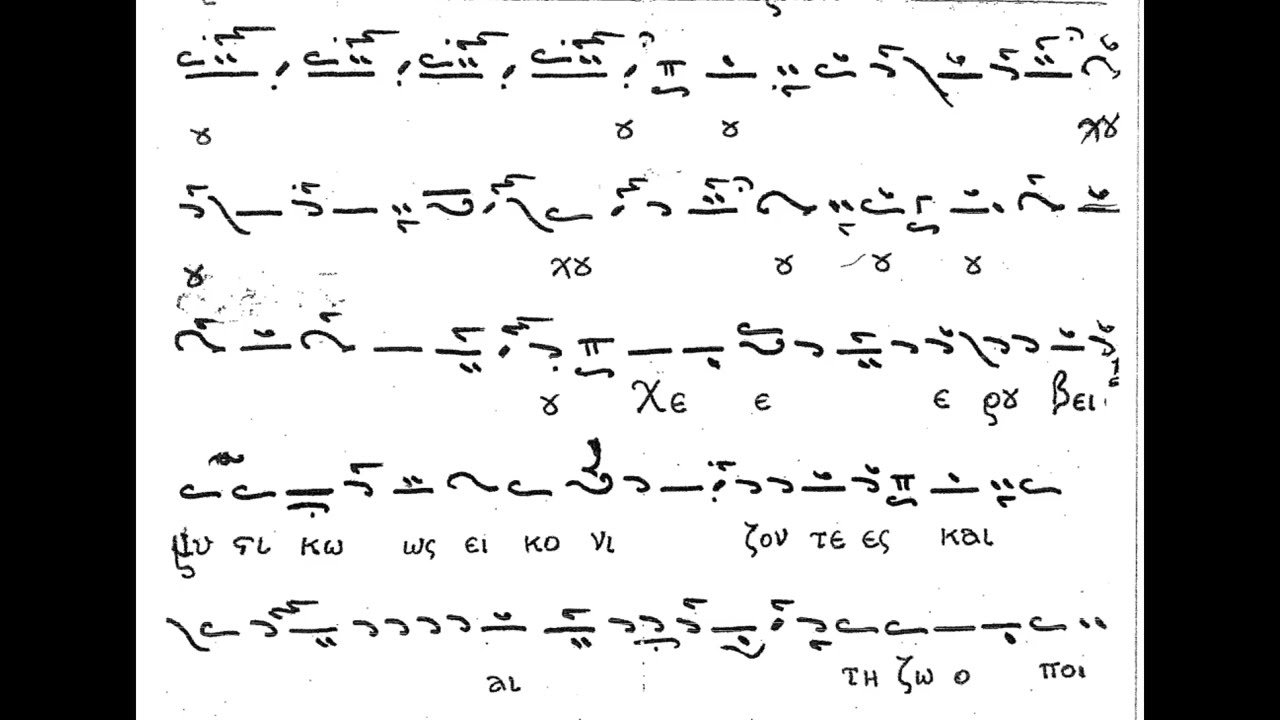 ȣ ȣ ȣ χȣ
ȣ χȣ ȣ ȣ ȣ
ȣ Χε ε ε ρȣ βει
μυ στι κω ως ει κο νι ζον τε ες και
αι τη ζω ο ποι